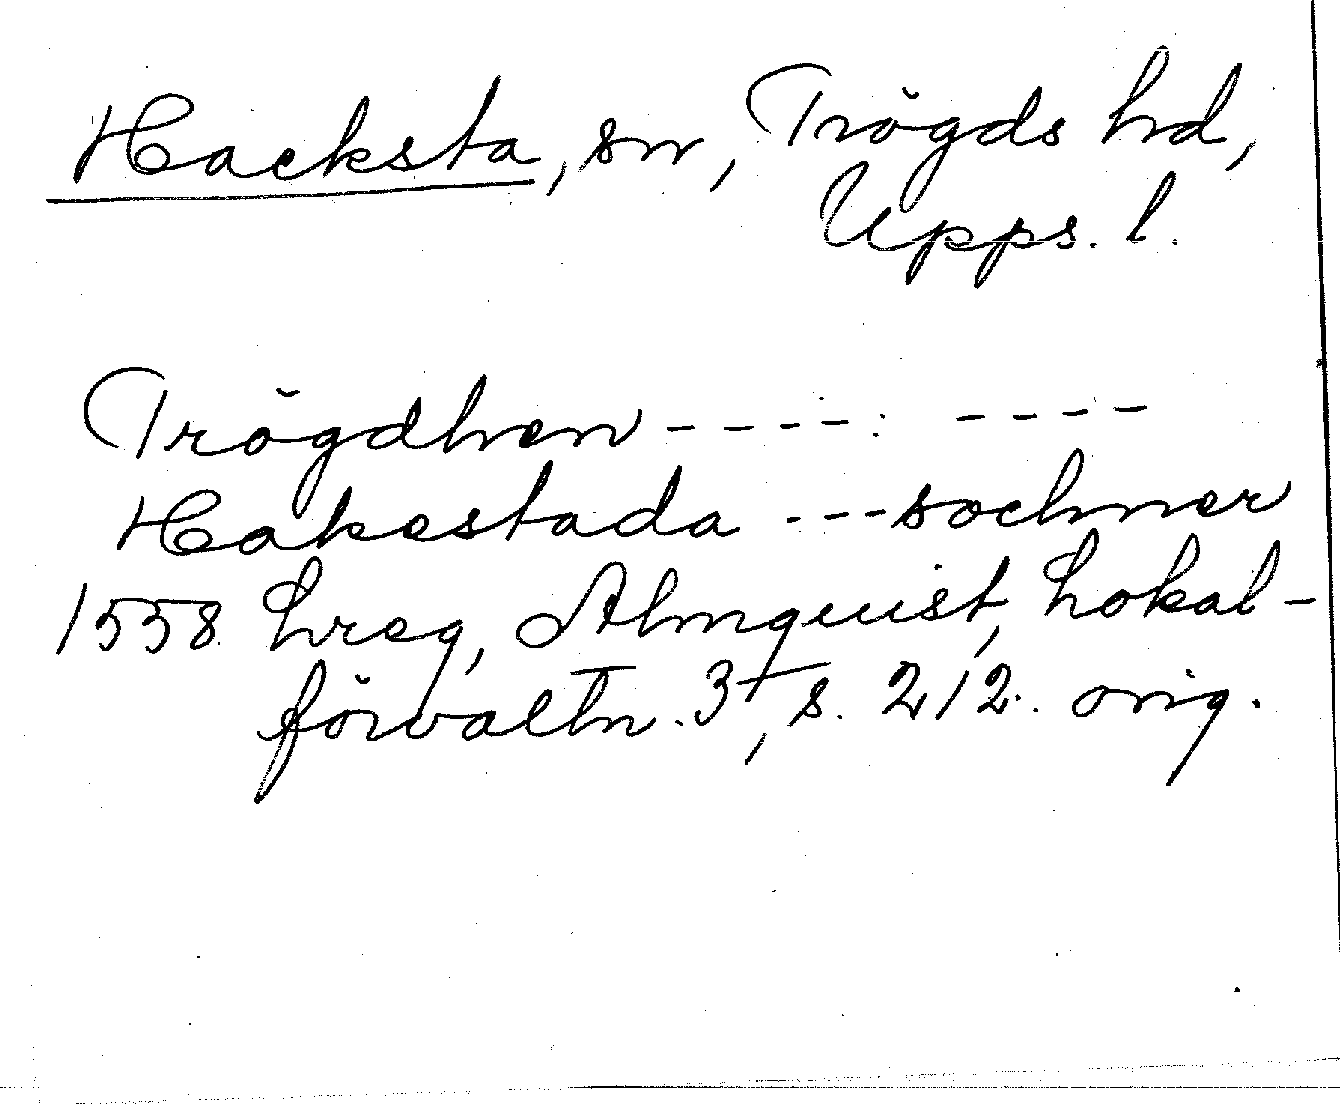 Hacksta, sn, Trögds hd,
Upps. l.
Trögdhen ----: ----
Hakestada --- sochner
1558 hreg, Almquist, Lokal-
förvaltn. 3, s. 212. orig.